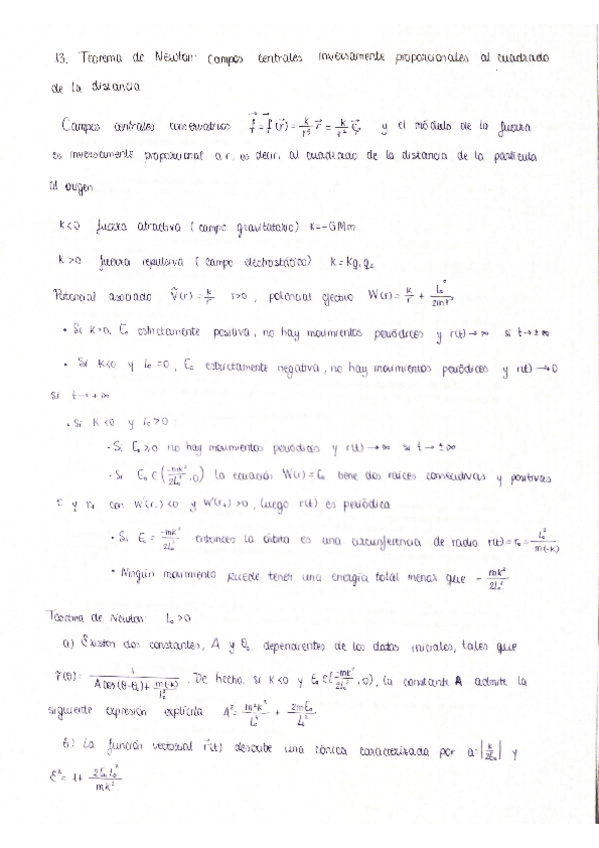 13. Teorema de Newton: campos centrales inversamente proporcionales al cuadrado
de la distancia
Campos centrales conservativos f⃗ = f⃗(r⃗) = k/r³ r⃗ = k/r² e⃗ᵣ y el módulo de la fuerza
es inversamente proporcional a r, es decir, al cuadrado de la distancia de la partícula
al origen
k<0 fuerza atractiva (campo gravitatorio) K=-GMm
k>0 fuerza repulsiva (campo electrostático) k=Kq₁q₂
Potencial asociado Ṽ(r)=k/r r>0, potencial efectivo W(r)=k/r + L₀²/2mr²
• Si k>0, E₀ estrictamente positiva, no hay movimientos periódicos y r(t)→∞ si t→±∞
• Si k<0 y L₀=0, E₀ estrictamente negativa, no hay movimientos periódicos y r(t)→0
si t→+∞
• Si k<0 y L₀>0:
• Si E₀≥0 no hay movimientos periódicos y r(t)→∞ si t→±∞
• Si E₀∈(-mk²/2L₀², 0) la ecuación W(r)=E₀ tiene dos raíces consecutivas y positivas
r₋ y r₊ con W'(r₋)<0 y W'(r₊)>0, luego r(t) es periódica
• Si E₀ = -mk²/2L₀² entonces la órbita es una circunferencia de radio r(t)=r₀=L₀²/m(-k)
• Ningún movimiento puede tener una energía total menor que -mk²/2L₀²
Teorema de Newton: L₀>0
a) Existen dos constantes, A y θ₀ dependientes de los datos iniciales, tales que
r̃(θ)= 1/(A cos(θ-θ₀)+ m(-k)/L₀²). De hecho, si k<0 y E₀∈[-mk²/2L₀², 0), la constante A admite la
siguiente expresión explícita A²= m²k²/L₀⁴ + 2mE₀/L₀²
b) La función vectorial r⃗(t) describe una cónica caracterizada por a=|k/2E₀| y
ε²= 1+ 2E₀L₀²/mk²